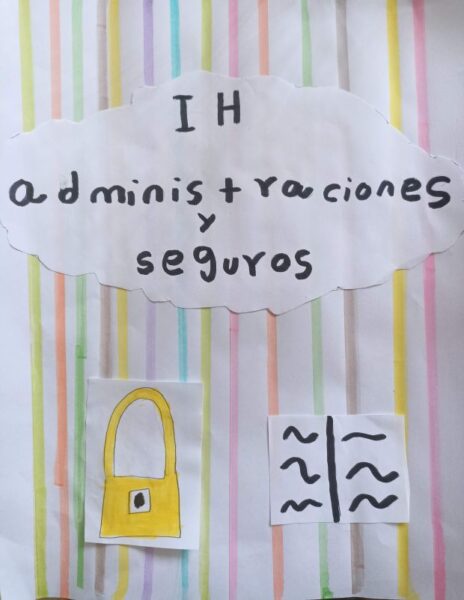 IH
administraciones
y
seguros